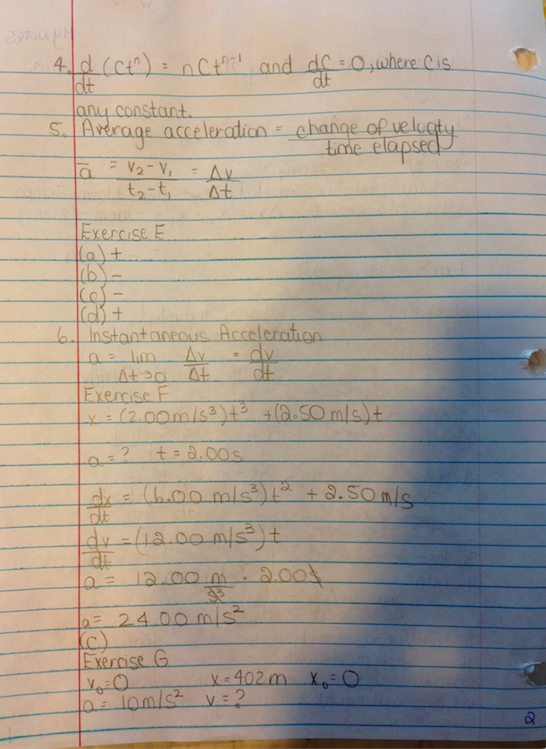 4. d/dt (Ctⁿ) = nCtⁿ⁻¹ and dC/dt = 0, where C is
any constant.
5. Average acceleration = change of velocity / time elapsed
a̅ = v₂ - v₁ / t₂ - t₁ = Δv / Δt
Exercise E
(a) +
(b) -
(c) -
(d) +
6. Instantaneous Acceleration
a = lim Δt→0 Δv/Δt = dv/dt
Exercise F
x = (2.00 m/s³)t³ + (2.50 m/s)t
a = ? t = 2.00s
dx/dt = (6.00 m/s³)t² + 2.50 m/s
dv/dt = (12.00 m/s³)t
a = 12.00 m/s³ · 2.00s
a = 24.00 m/s²
(C)
Exercise G
v₀ = 0 x = 402 m x₀ = 0
a = 10 m/s² v = ?
2